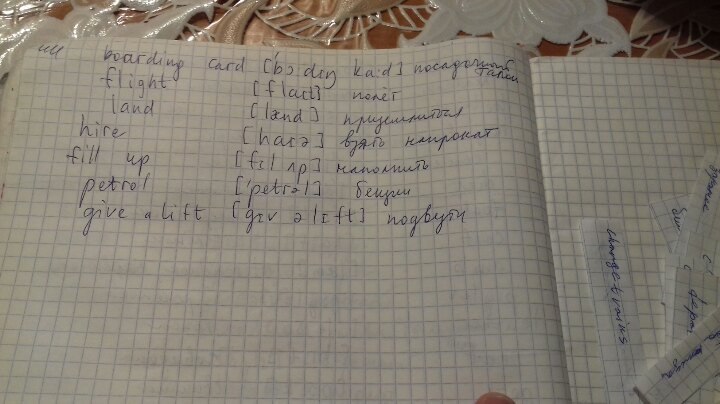 boarding card ['bɔ:dɪŋ ka:d] посадочный талон
flight [flaɪt] полёт
land [lænd] приземлиться
hire [haɪə] взять напрокат
fill up [fɪl ʌp] наполнить
petrol ['petrəl] бензин
give a lift [gɪv ə lɪft] подвезти
change trains